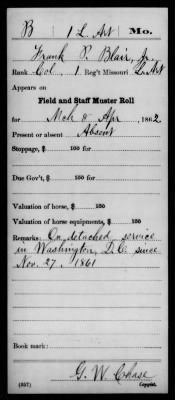 B | 1 L. Art | Mo.
Frank P. Blair, Jr.
Rank Col., 1 Reg't Missouri L. Art
Appears on
Field and Staff Muster Roll
for Mch & Apr, 1862
Present or absent Absent
Stoppage, $ 100 for
Due Gov't, $ 100 for
Valuation of horse, $ 100
Valuation of horse equipments, $ 100
Remarks: On detached service
in Washington, D.C. since
Nov. 27, 1861
Book mark:
G. W. Chase
(357) Copyist.